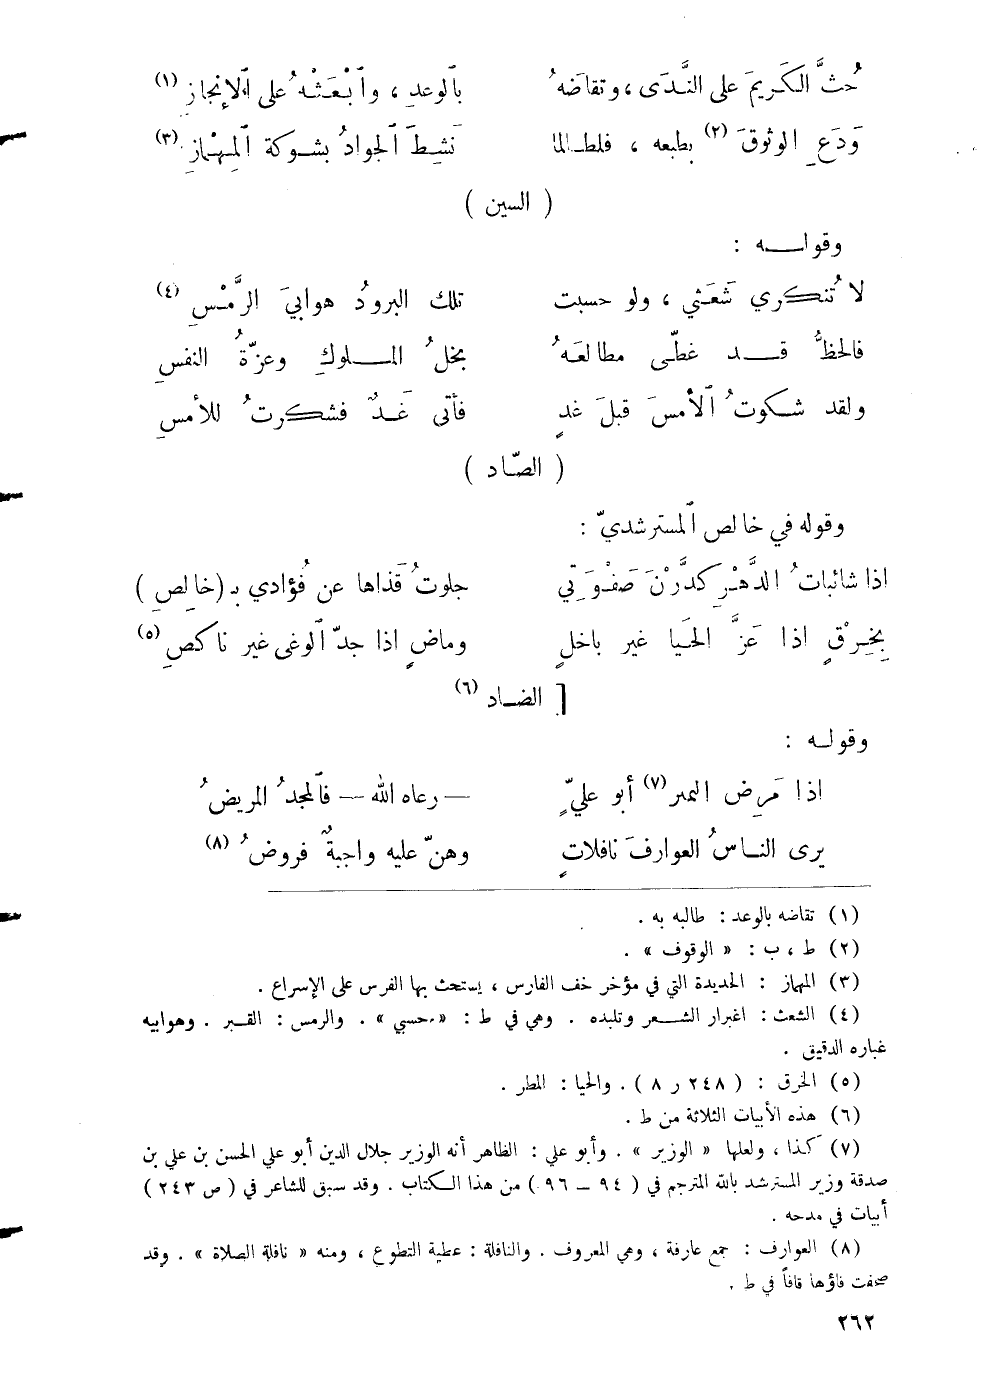 حُثَّ الكَريمَ على النَّدَى ، وتقاضَهُ بٱلوعدِ ، وٱبْعَثْهُ على ٱلإنجازِ (١)
وَدَعِ الوثوقَ (٢) بطبعه ، فلطـالما نَشِطَ ٱلجوادُ بشوكة ٱلمِهْمازِ (٣)
( السين )
وقولـــه :
لا تُنكري شَعَثي ، ولو حسبت تلك البرودُ هوابيَ الرَّمْسِ (٤)
فالحظُّ قـــد غطّى مطالعَهُ بخلُ المــلوكِ وعزّةُ النفسِ
ولقد شكوتُ ٱلأمسَ قبلَ غدٍ فأتى غَدٌ فشكرتُ للأمسِ
( الصّاد )
وقوله في خالص ٱلمسترشديّ :
اذا شائباتُ الدَّهْرِ كدَّرْنَ صَفْوَتِي جلوتُ قَذاها عن فُؤادي بـ (خالِصِ)
بِخِرْقٍ اذا عَزَّ الحَيا غير باخلٍ وماضٍ اذا جدّ ٱلوغى غير ناكصِ (٥)
[ الضـاد (٦)
وقولـه :
اذا مَرِض النمر (٧) أبو عليٍّ — رعاه الله — فٱلمجدُ المريضُ
يرى النـاسُ العوارفَ نافلاتٍ وهنّ عليه واجبةٌ فروضُ (٨)
(١) تقاضه بالوعد : طالبه به .
(٢) ط ، ب : « الوقوف » .
(٣) المهماز : الحديدة التي في مؤخر خف الفارس ، يستحث بها الفرس على الإسراع .
(٤) الشعث : اغبرار الشـعر وتلبده . وهي في ط : « حسبي » . والرمس : القـبر . وهوابيه
غباره الدقيق .
(٥) الخرق : ( ٢٤٨ ر ٨ ) . والحيا : المطر .
(٦) هذه الأبيات الثلاثة من ط .
(٧) كذا ، ولعلها « الوزير » . وأبو علي : الظاهر أنه الوزير جلال الدين أبو علي الحسن بن علي بن
صدقة وزير المسترشد بالله المترجم في ( ٩٤ – ٩٦ ) من هذا الكتاب . وقد سبق للشاعر في ( ص ٢٤٣ )
أبيات في مدحه .
(٨) العوارف : جمع عارفة ، وهي المعروف . والنافلة : عطية التطوع ، ومنه « نافلة الصلاة » . وقد
صحفت فاؤها قافاً في ط .
٢٦٢